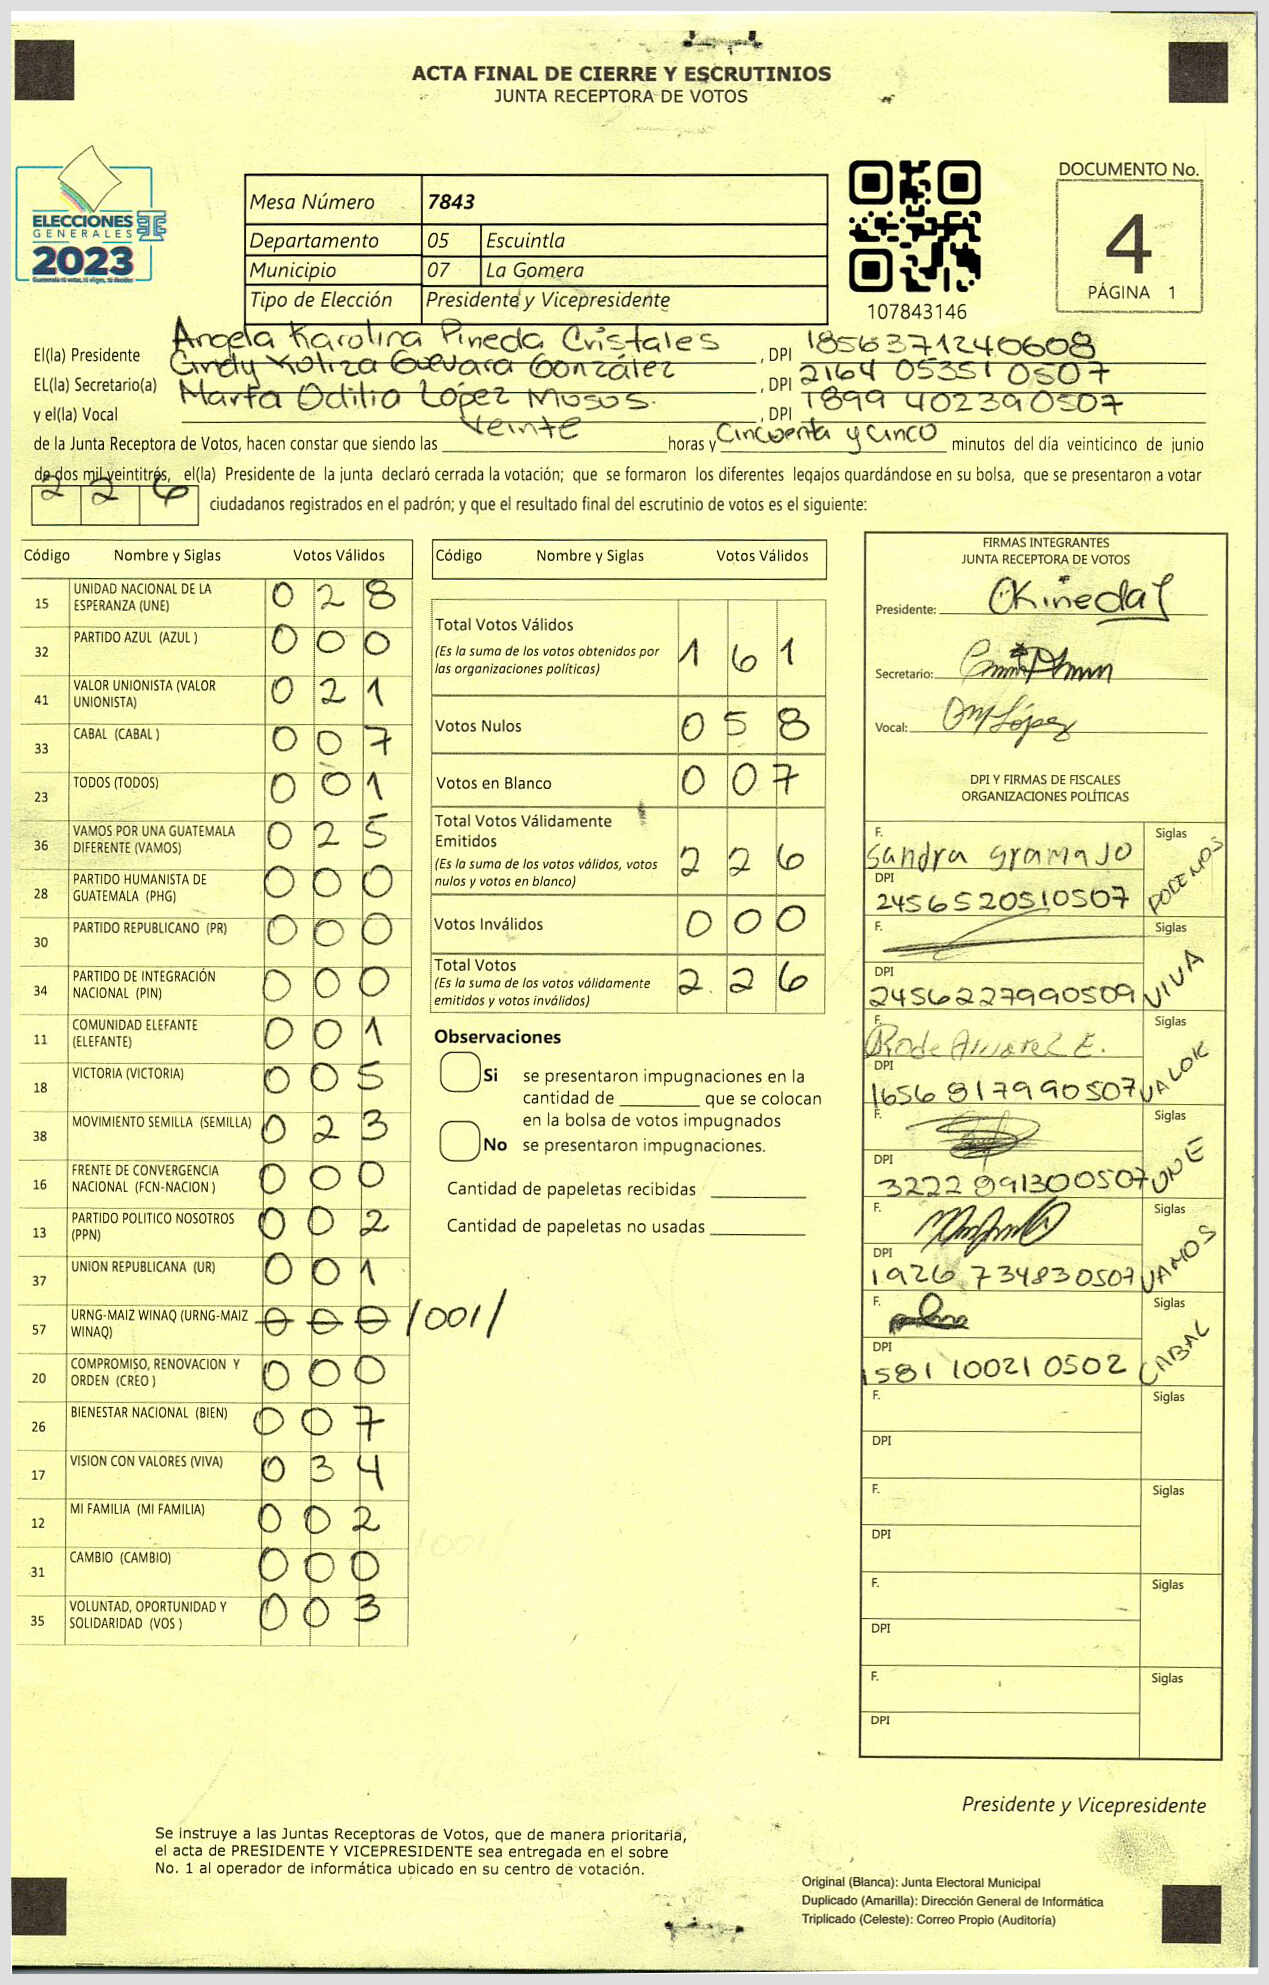 ACTA FINAL DE CIERRE Y ESCRUTINIOS
JUNTA RECEPTORA DE VOTOS
ELECCIONES
GENERALES
2023
Mesa Número 7843
Departamento 05 Escuintla
Municipio 07 La Gomera
Tipo de Elección Presidente y Vicepresidente
107843146
DOCUMENTO No.
4
PÁGINA 1
El(la) Presidente Angela Karolina Pineda Cristales , DPI 1856371240608
EL(la) Secretario(a) Cindy Guevara González , DPI 2164 05351 0507
y el(la) Vocal Marta Odilia López , DPI 1899 402390507
de la Junta Receptora de Votos, hacen constar que siendo las veinte horas y cincuenta y cinco minutos del día veinticinco de junio
de dos mil veintitrés, el(la) Presidente de la junta declaró cerrada la votación; que se formaron los diferentes legajos guardándose en su bolsa, que se presentaron a votar
226 ciudadanos registrados en el padrón; y que el resultado final del escrutinio de votos es el siguiente:
Código Nombre y Siglas Votos Válidos
15 UNIDAD NACIONAL DE LA ESPERANZA (UNE) 0 2 8
32 PARTIDO AZUL (AZUL ) 0 0 0
41 VALOR UNIONISTA (VALOR UNIONISTA) 0 2 1
33 CABAL (CABAL ) 0 0 7
23 TODOS (TODOS) 0 0 1
36 VAMOS POR UNA GUATEMALA DIFERENTE (VAMOS) 0 2 5
28 PARTIDO HUMANISTA DE GUATEMALA (PHG) 0 0 0
30 PARTIDO REPUBLICANO (PR) 0 0 0
34 PARTIDO DE INTEGRACIÓN NACIONAL (PIN) 0 0 0
11 COMUNIDAD ELEFANTE (ELEFANTE) 0 0 1
18 VICTORIA (VICTORIA) 0 0 5
38 MOVIMIENTO SEMILLA (SEMILLA) 0 2 3
16 FRENTE DE CONVERGENCIA NACIONAL (FCN-NACION ) 0 0 0
13 PARTIDO POLITICO NOSOTROS (PPN) 0 0 2
37 UNION REPUBLICANA (UR) 0 0 1
57 URNG-MAIZ WINAQ (URNG-MAIZ WINAQ) 0 0 0 /001/
20 COMPROMISO, RENOVACION Y ORDEN (CREO ) 0 0 0
26 BIENESTAR NACIONAL (BIEN) 0 0 7
17 VISION CON VALORES (VIVA) 0 3 4
12 MI FAMILIA (MI FAMILIA) 0 0 2
31 CAMBIO (CAMBIO) 0 0 0
35 VOLUNTAD, OPORTUNIDAD Y SOLIDARIDAD (VOS ) 0 0 3
Código Nombre y Siglas Votos Válidos
Total Votos Válidos 1 6 1
(Es la suma de los votos obtenidos por las organizaciones políticas)
Votos Nulos 0 5 8
Votos en Blanco 0 0 7
Total Votos Válidamente Emitidos 2 2 6
(Es la suma de los votos válidos, votos nulos y votos en blanco)
Votos Inválidos 0 0 0
Total Votos 2 2 6
(Es la suma de los votos válidamente emitidos y votos inválidos)
Observaciones
Si se presentaron impugnaciones en la
cantidad de ________ que se colocan
en la bolsa de votos impugnados
No se presentaron impugnaciones.
Cantidad de papeletas recibidas ________
Cantidad de papeletas no usadas ________
FIRMAS INTEGRANTES
JUNTA RECEPTORA DE VOTOS
Presidente:
Secretario:
Vocal: López
DPI Y FIRMAS DE FISCALES
ORGANIZACIONES POLÍTICAS
F. Sandra Gramajo Siglas PODEMOS
DPI 2456520510507
F. Siglas VIVA
DPI 2456227990509
F. Alvarez E. Siglas VALOR
DPI 1656 817990507
F. Siglas UNE
DPI 3222 991300507
F. Siglas VAMOS
DPI 1926 734830507
F. Siglas CABAL
DPI 1581 10021 0502
F. Siglas
DPI
F. Siglas
DPI
F. Siglas
DPI
F. Siglas
DPI
Presidente y Vicepresidente
Se instruye a las Juntas Receptoras de Votos, que de manera prioritaria,
el acta de PRESIDENTE Y VICEPRESIDENTE sea entregada en el sobre
No. 1 al operador de informática ubicado en su centro de votación.
Original (Blanca): Junta Electoral Municipal
Duplicado (Amarilla): Dirección General de Informática
Triplicado (Celeste): Correo Propio (Auditoría)